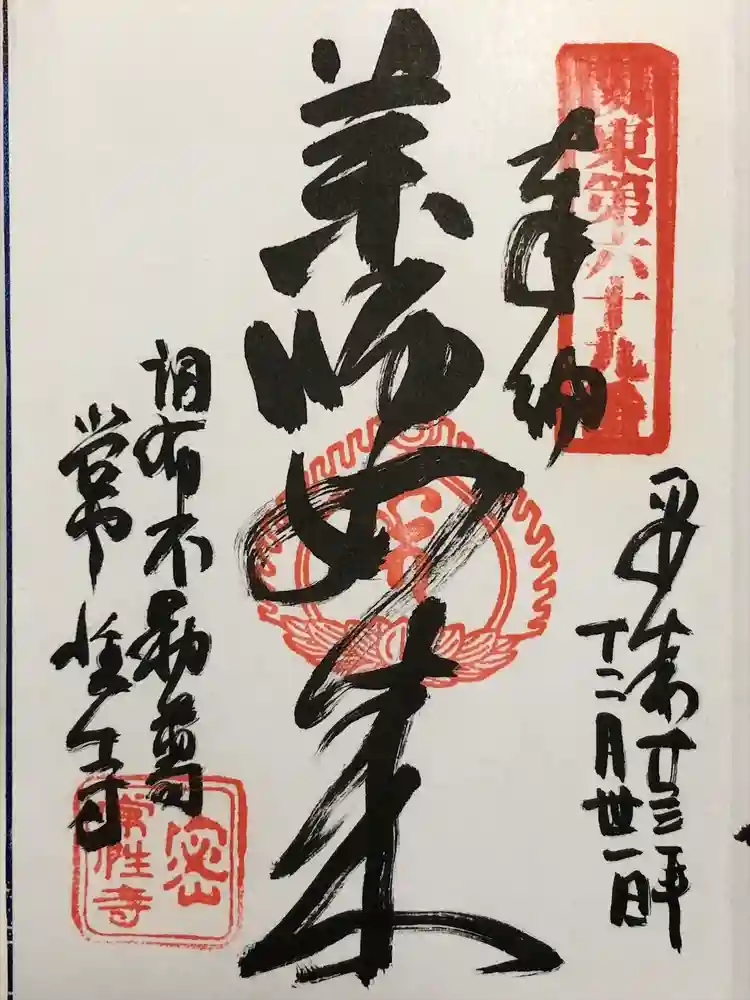 関東第六十九番
奉納
平成廿三年
十二月丗一日
薬師如来
調布不動尊
常性寺
常性寺